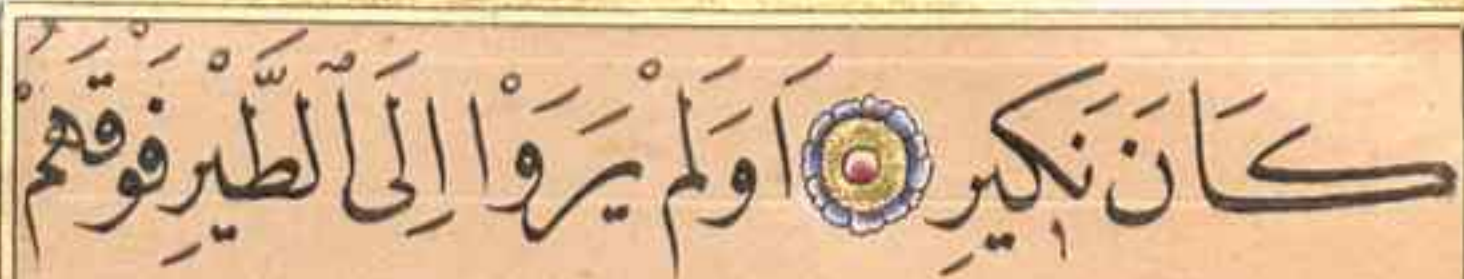 كَانَ نَكِيرِ اَوَلَمْ يَرَوْا اِلَى ٱلطَّيْرِ فَوْقَهُمْ